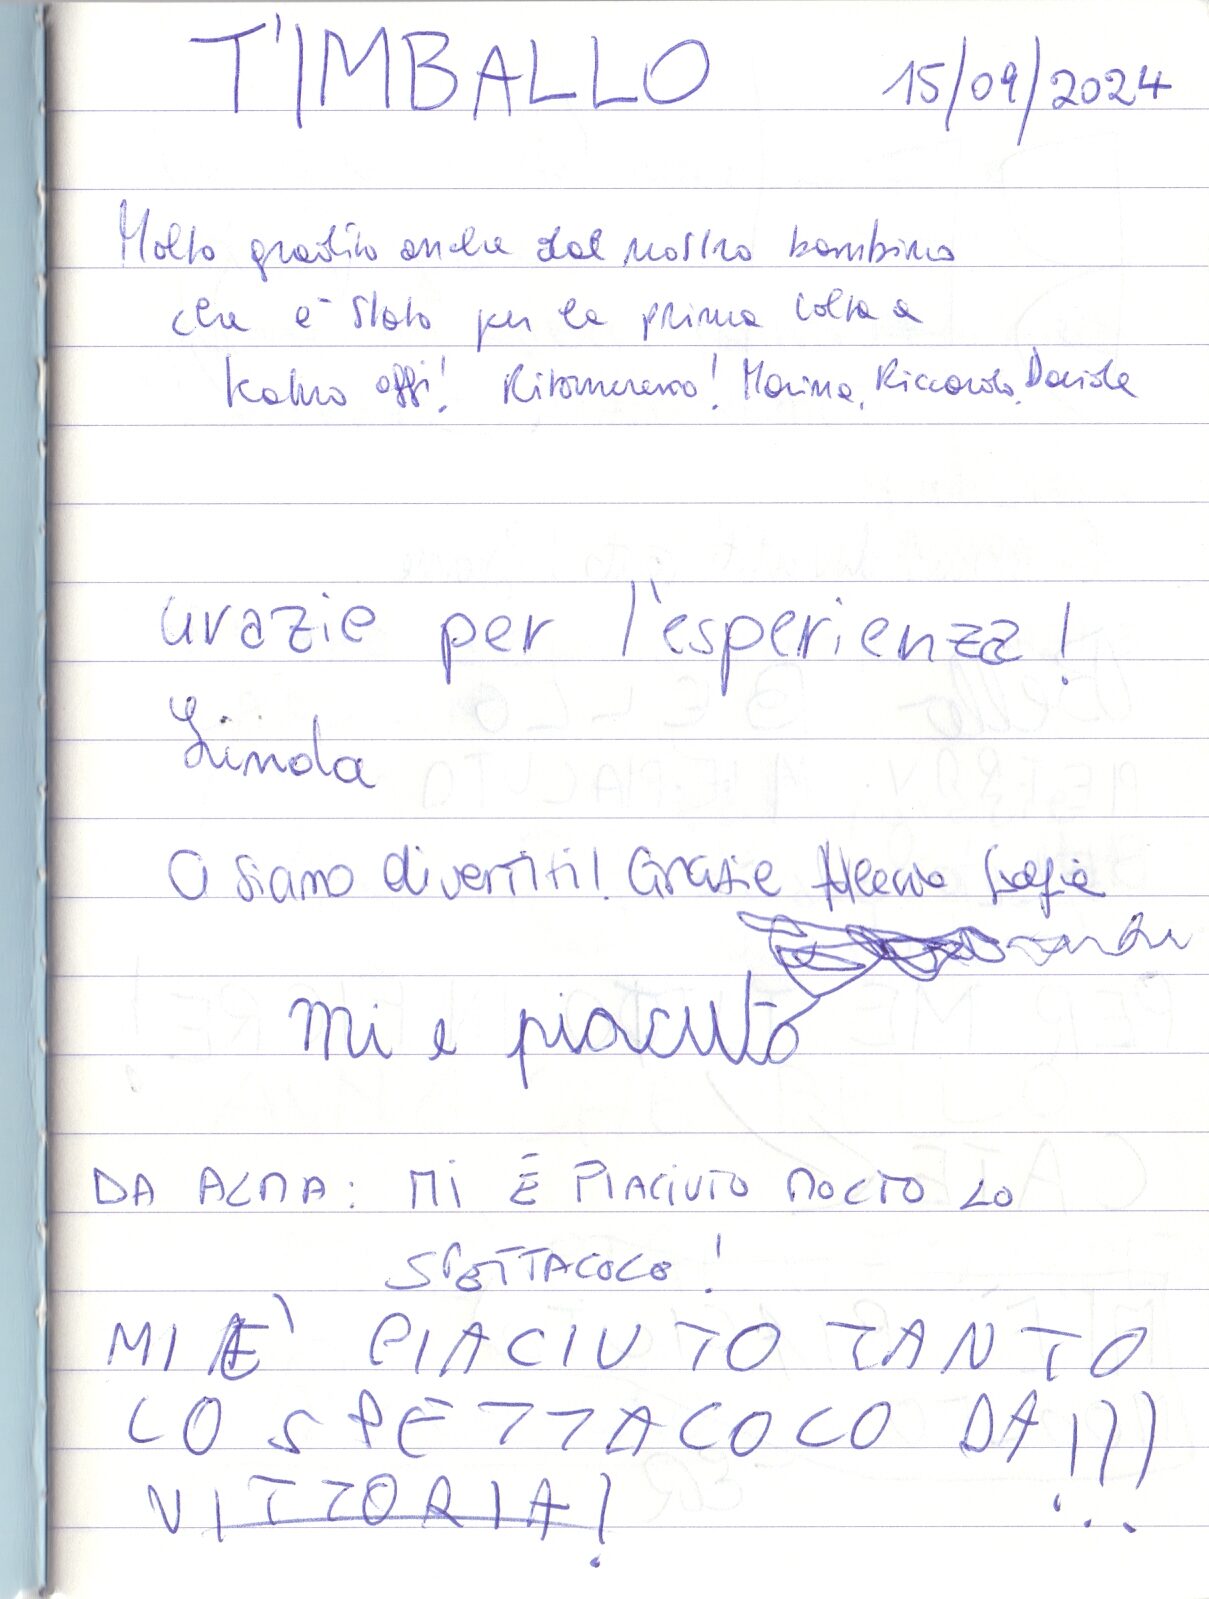 T'IMBALLO 15/09/2024
Molto gradito anche dal nostro bambino
che è stato per la prima volta a
teatro oggi! Ritorneremo! Marina, Riccardo, Davide
Grazie per l'esperienza!
Linda
Ci siamo divertiti! Grazie
mi e piacuto
DA ALMA: MI È PIACIUTO MOLTO LO
SPETTACOLO!
MI È PIACIUTO TANTO
LO SPETTACOLO DA!!!
VITTORIA!